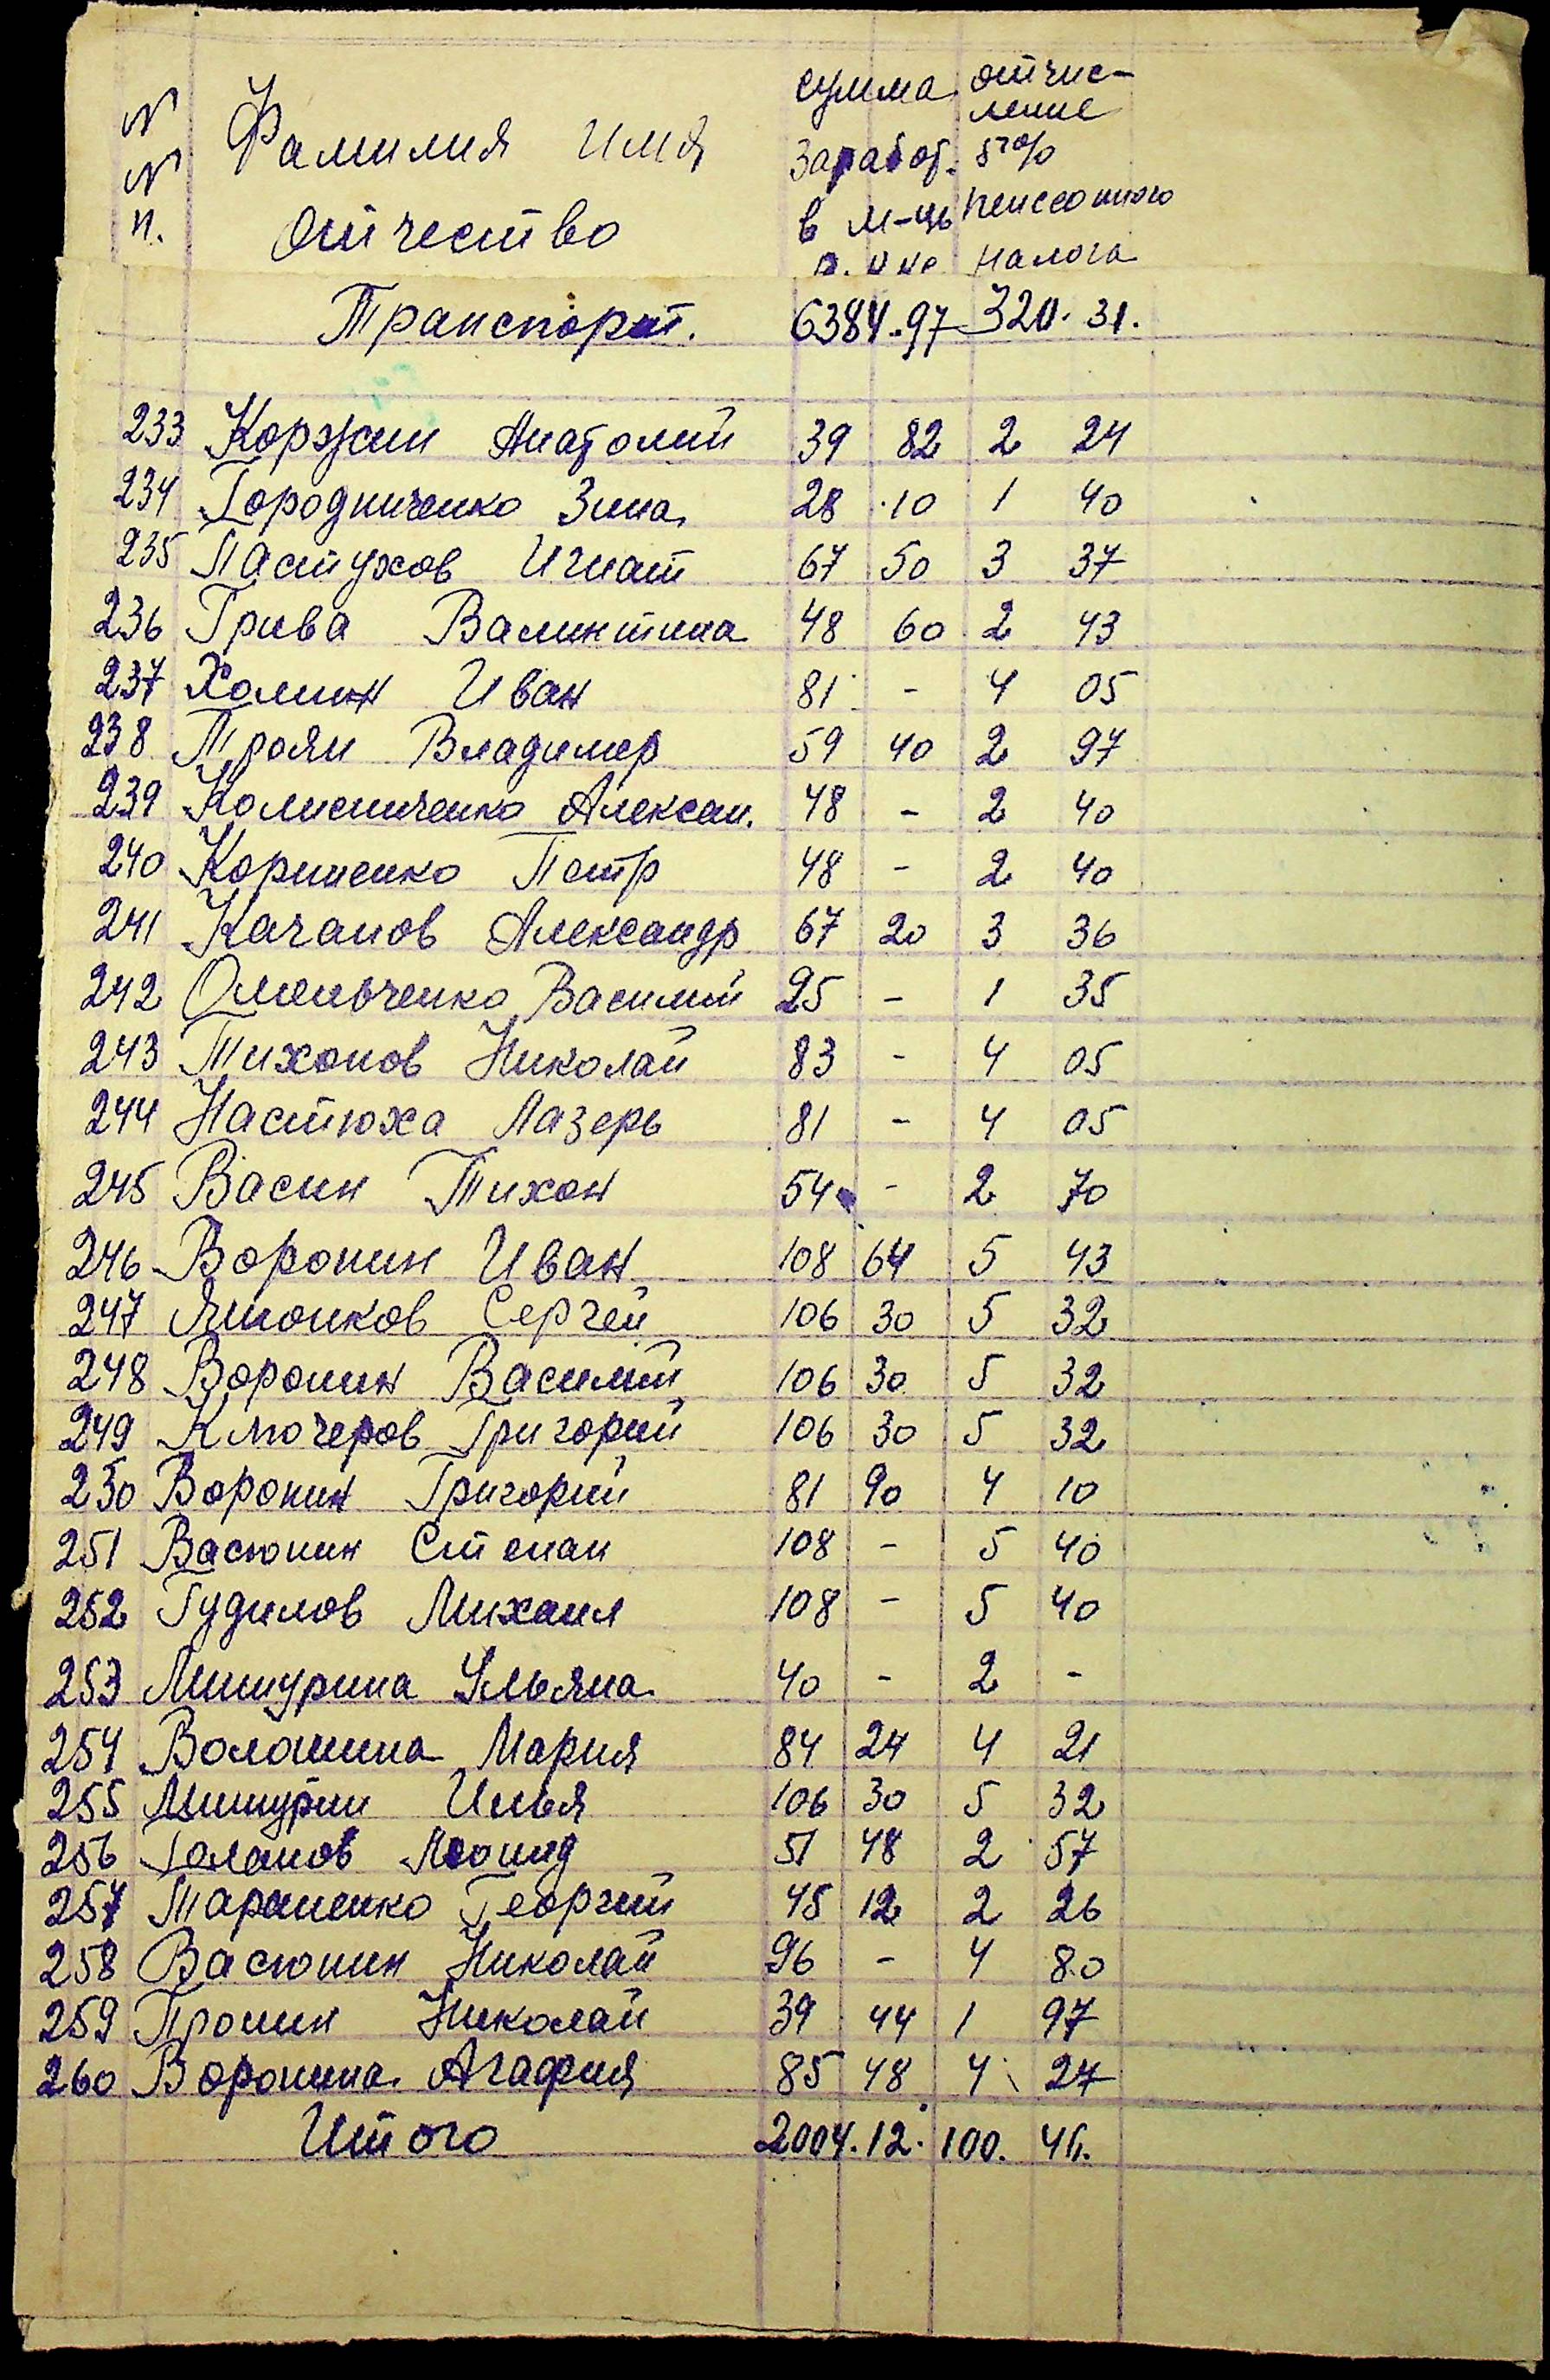 N N п. Фамилия Имя Отчество
сумма заработ. в м-ць
отчис-
ление
5%
пенссонного
налога
Транспорт. 6384.97 320.31.
233 Коржин Анатолий 39 82 2 24
234 Городниченко Зина 28 10 1 40
235 Пастухов Игнат 67 50 3 37
236 Грива Валинтина 48 60 2 43
237 Холин Иван 81 - 4 05
238 Проян Владимер 59 40 2 97
239 Колисниченко Алексан. 48 - 2 40
240 Корниенко Петр 48 - 2 40
241 Качанов Александр 67 20 3 36
242 Омельченко Василий 25 - 1 35
243 Тихонов Николай 83 - 4 05
244 Настюха Лазерь 81 - 4 05
245 Васин Тихон 54 - 2 70
246 Воронин Иван 108 64 5 43
247 Сергей 106 30 5 32
248 Воронин Василий 106 30 5 32
249 Ключеров Григорий 106 30 5 32
250 Воронин Григорий 81 90 4 10
251 Васюнин Степан 108 - 5 40
252 Гудилов Михаил 108 - 5 40
253 Мишурина Ульяна 40 - 2 -
254 Волошина Мария 84 24 4 21
255 Мишурин Илья 106 30 5 32
256 Голанов Леонид 51 48 2 57
257 Тараненко Георгий 45 12 2 26
258 Васюнин Николай 96 - 4 80
259 Пронин Николай 39 44 1 97
260 Воронина Агафия 85 48 4 27
Итого 2004.12. 100.